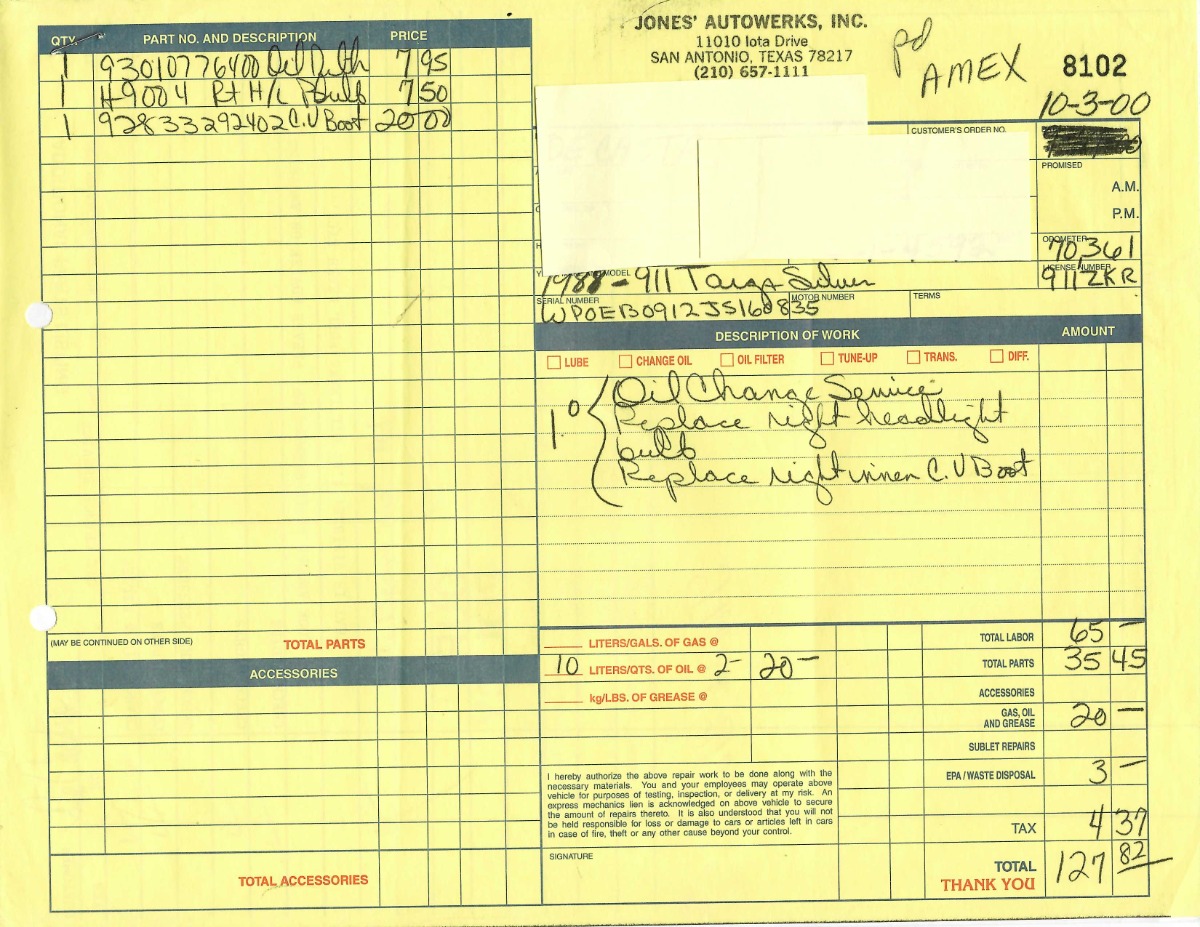 JONES' AUTOWERKS, INC.
11010 Iota Drive
SAN ANTONIO, TEXAS 78217
(210) 657-1111
pd
AMEX
8102
10-3-00
QTY. PART NO. AND DESCRIPTION PRICE
1 93010776400 Oil 7 95
1 H9004 Rt H/L Bulb 7 50
1 92833292402 C.V Boot 20 00
CUSTOMER'S ORDER NO.
PROMISED
A.M.
P.M.
ODOMETER
70,361
MODEL
1988 - 911 Targa Silver
LICENSE NUMBER
911ZKR
SERIAL NUMBER
WP0EB0912JS160835
MOTOR NUMBER
TERMS
DESCRIPTION OF WORK AMOUNT
LUBE CHANGE OIL OIL FILTER TUNE-UP TRANS. DIFF.
1.0
Oil Change Service
Replace right headlight
bulb
Replace right inner C.V Boot
(MAY BE CONTINUED ON OTHER SIDE) TOTAL PARTS
ACCESSORIES
TOTAL ACCESSORIES
LITERS/GALS. OF GAS @
10 LITERS/QTS. OF OIL @ 2- 20-
kg/LBS. OF GREASE @
TOTAL LABOR 65 -
TOTAL PARTS 35 45
ACCESSORIES
GAS, OIL
AND GREASE 20 -
SUBLET REPAIRS
EPA / WASTE DISPOSAL 3 -
TAX 4 37
TOTAL 127 82
THANK YOU
I hereby authorize the above repair work to be done along with the
necessary materials. You and your employees may operate above
vehicle for purposes of testing, inspection, or delivery at my risk. An
express mechanics lien is acknowledged on above vehicle to secure
the amount of repairs thereto. It is also understood that you will not
be held responsible for loss or damage to cars or articles left in cars
in case of fire, theft or any other cause beyond your control.
SIGNATURE